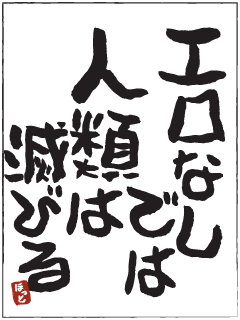 エロなし
では
人類は
滅びる
ほっと